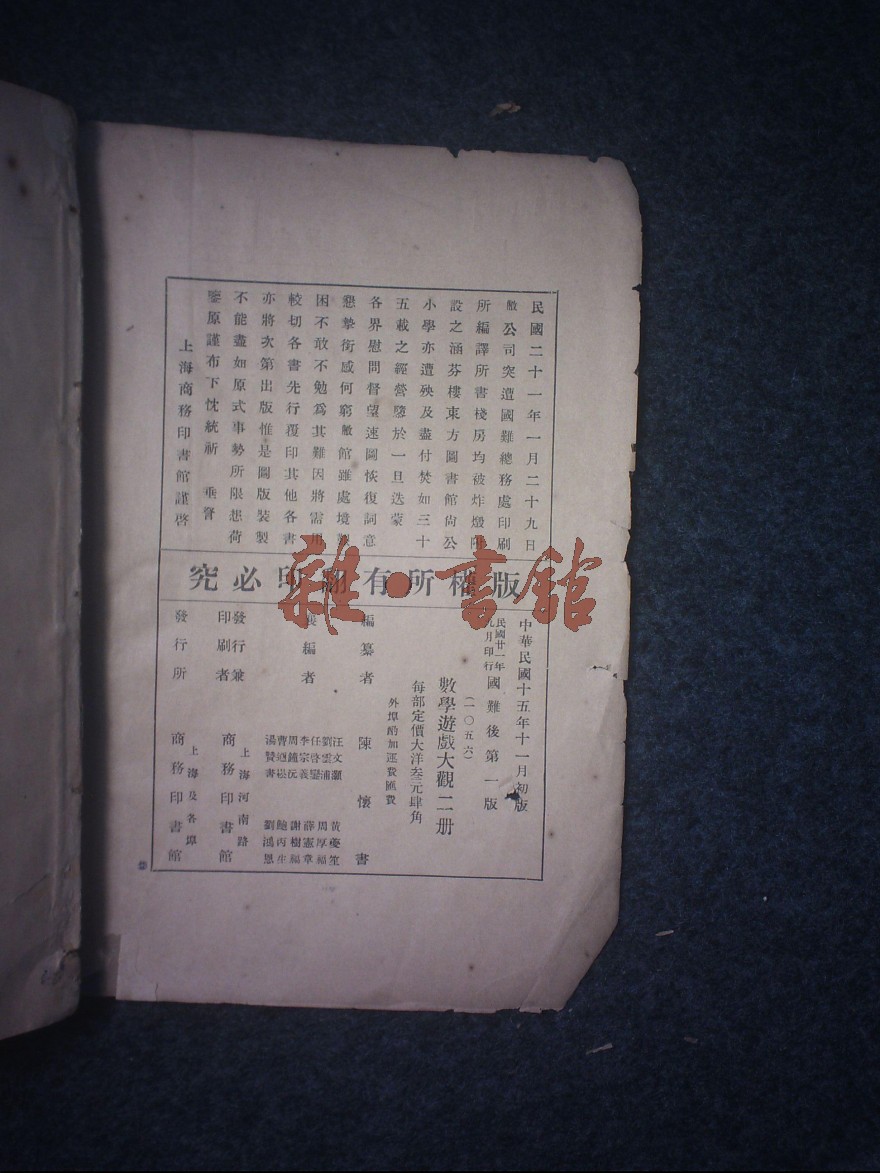 民國二十一年一月二十九日
敝公司突遭國難總務處印刷
所編譯所書棧房均被炸燬附
設之涵芬樓東方圖書館尙公
小學亦遭殃及盡付焚如三十
五載之經營隳於一旦迭蒙
各界慰問督望速圖恢復詞意
懇摯銜感何窮敝館雖處境
困不敢不勉爲其難因將需用
較切各書先行覆印其他各書
亦將次第出版惟是圖版裝製
不能盡如原式事勢所限想荷
鑒原謹布下忱統祈 垂詧
上海商務印書館謹啓
版權所有翻印必究
中華民國十五年十一月初版
民國廿一年九月印行 國難後第一版
(一〇五六)
數學遊戲大觀二册
每部定價大洋叁元肆角
外埠酌加運費匯費
編纂者 陳懷書
編者
汪文灝 黃夔笙
劉雲浦 周厚福
任啓鑾 薛憲章
李宗義 謝樹福
周鐘沅 鮑丙生
曹迺崧 劉鴻恩
湯賢書
發行兼印刷者 上海河南路 商務印書館
發行所 上海及各埠 商務印書館
雜·書館